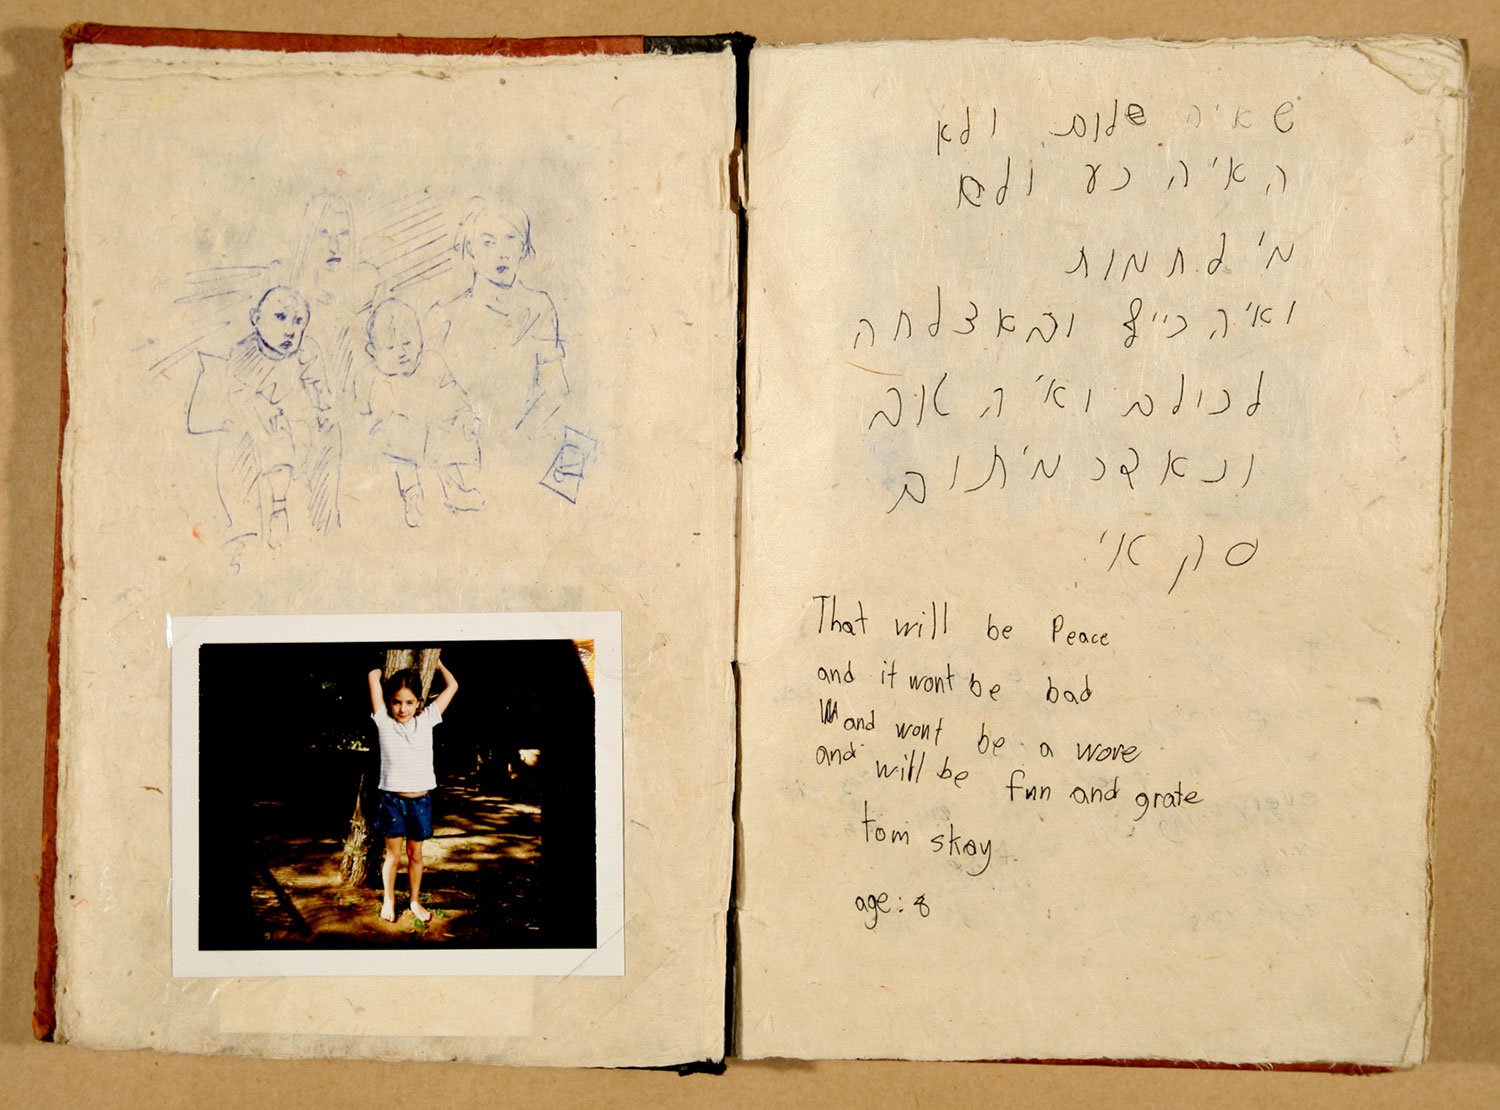 שאיה שלום ולא
האיה רע ולם
מילחמות
ואיה כייף ובאצלחה
לכולם ואיה טוב
מיתום
סקאי
That will be Peace
and it wont be bad
and wont be a wore
and will be fun and grate
tom skay
age: 8